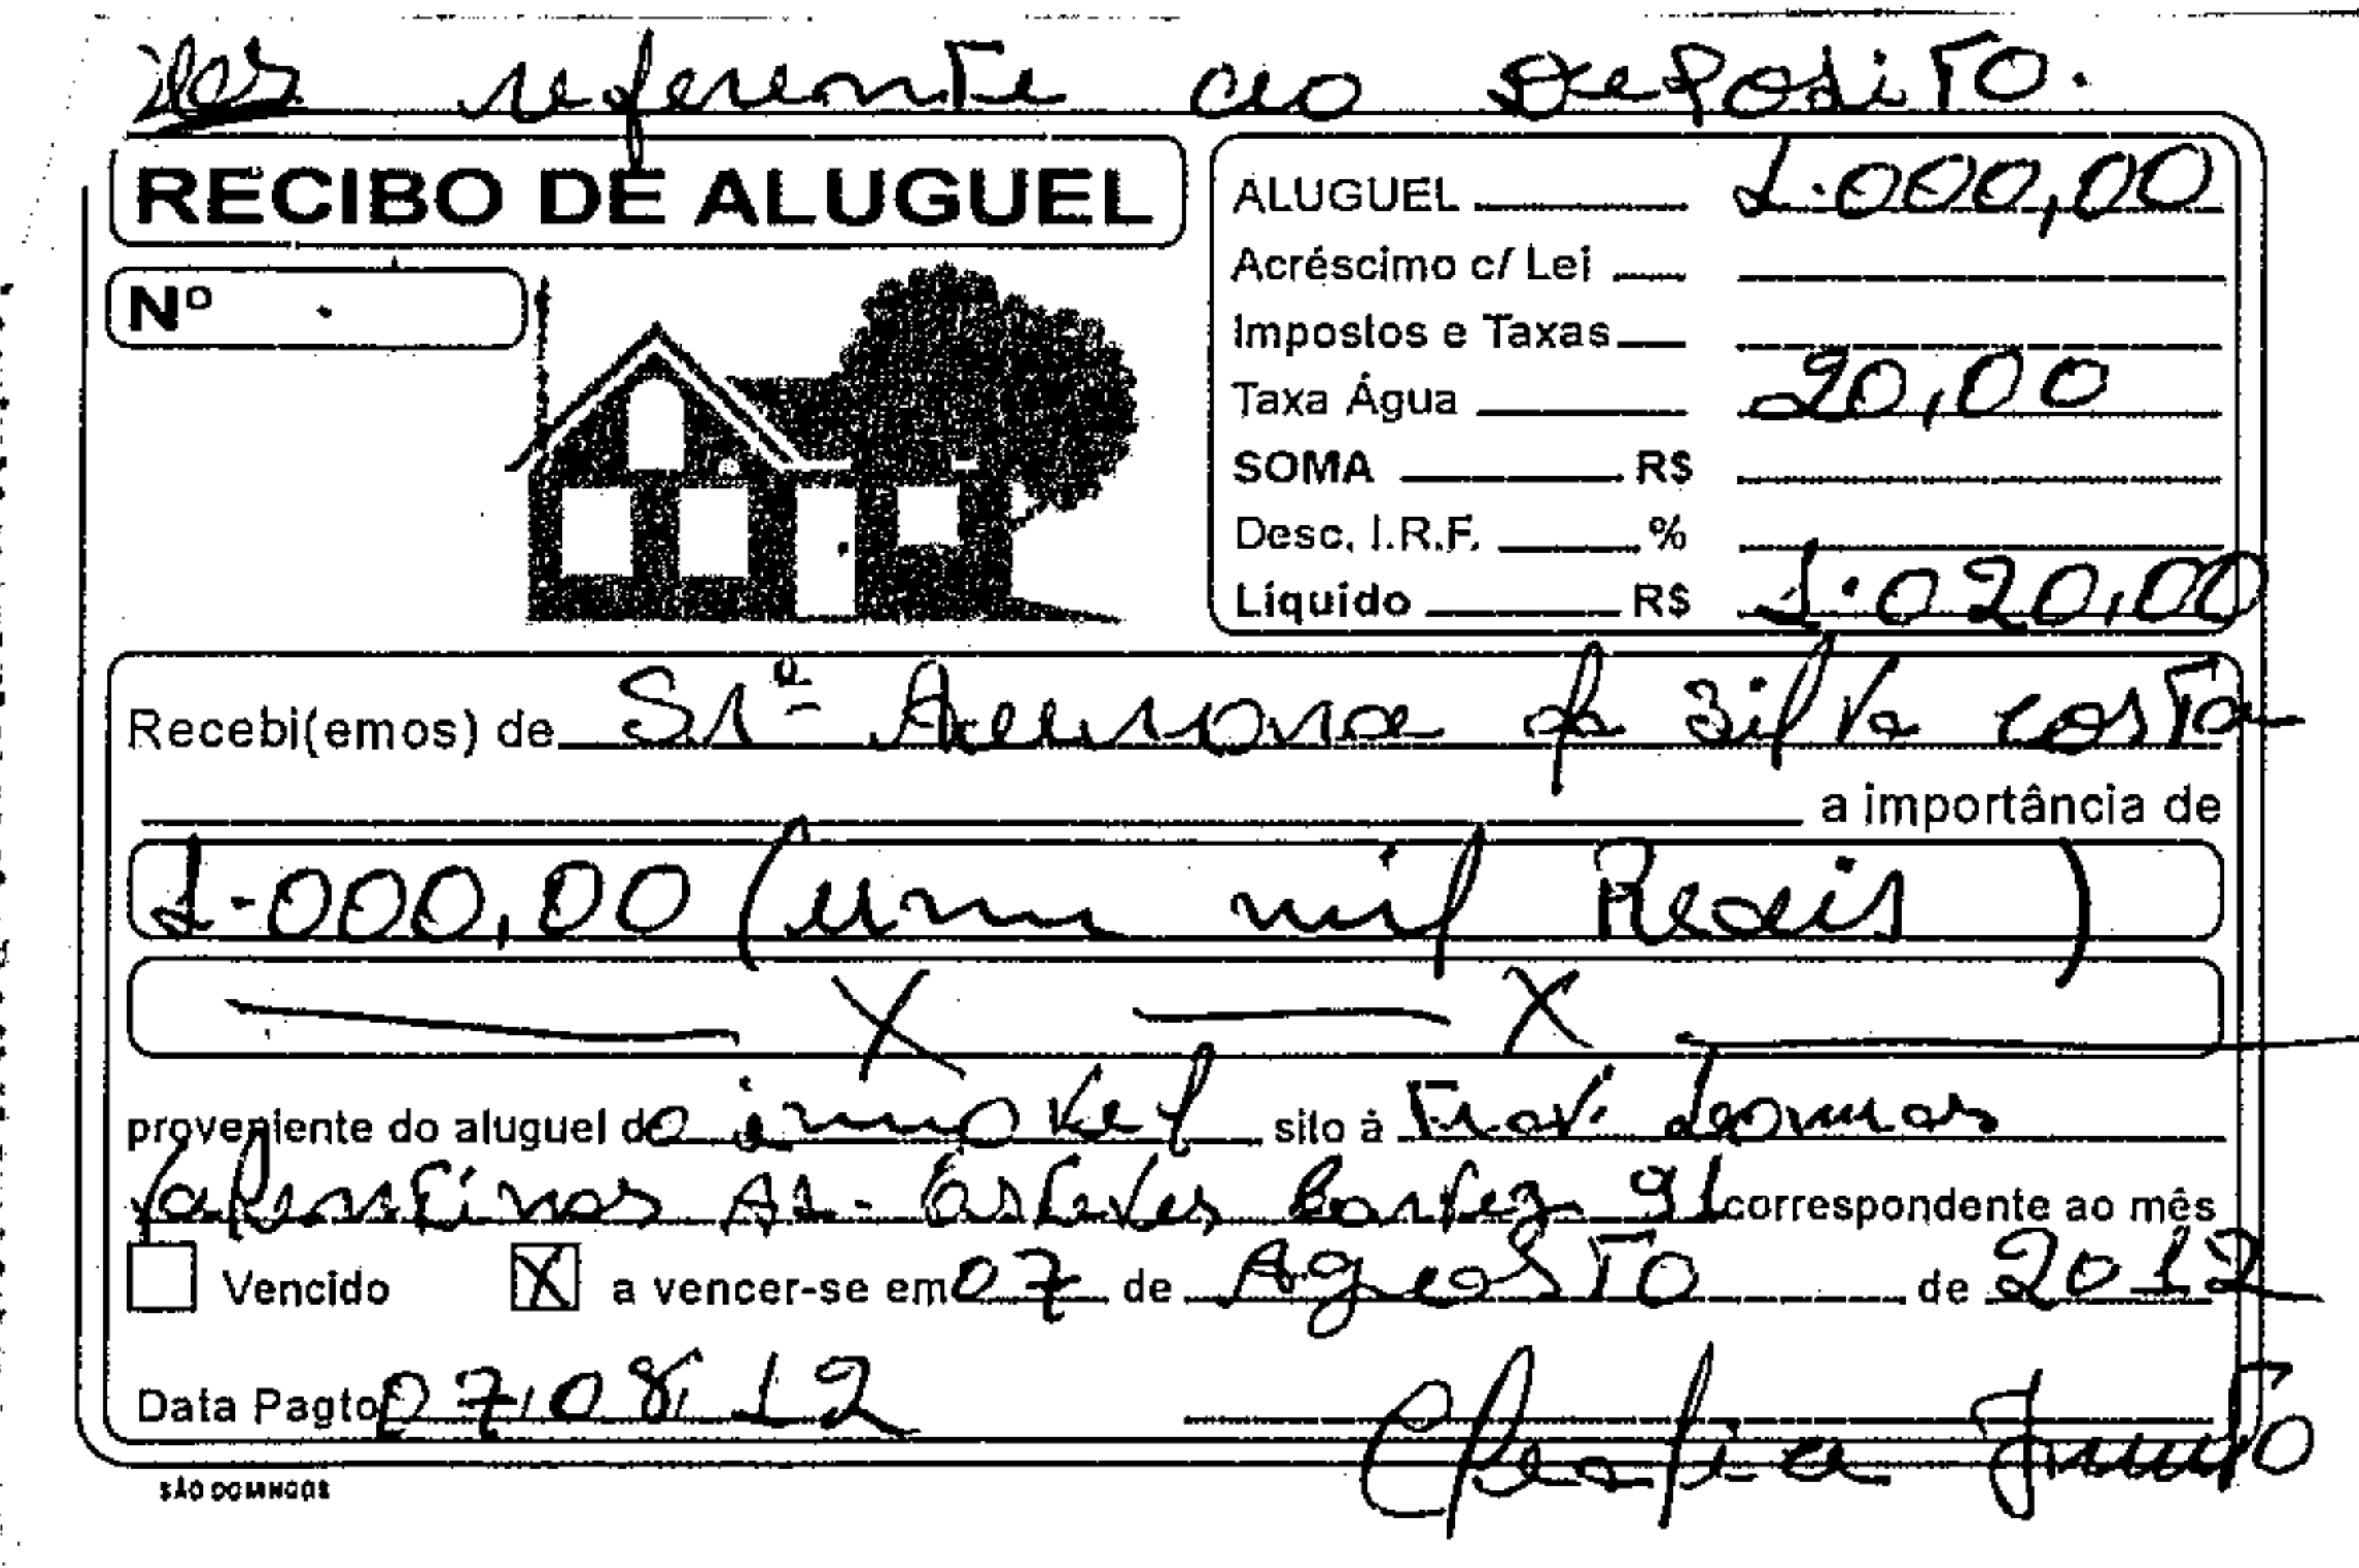 referente ao Deposito.
RECIBO DE ALUGUEL
Nº
ALUGUEL 1.000,00
Acréscimo c/ Lei
Impostos e Taxas
Taxa Água 20,00
SOMA R$
Desc. I.R.F. %
Líquido R$ 1.020,00
Recebi(emos) de Srª da Silva costa
a importância de
1.000,00 (um mil Reais)
X X
proveniente do aluguel do imovel sito à Trav.
91 correspondente ao mês
Vencido X a vencer-se em 07 de Agosto de 2012
Data Pagto 07/08/12
SÃO DOMINGOS